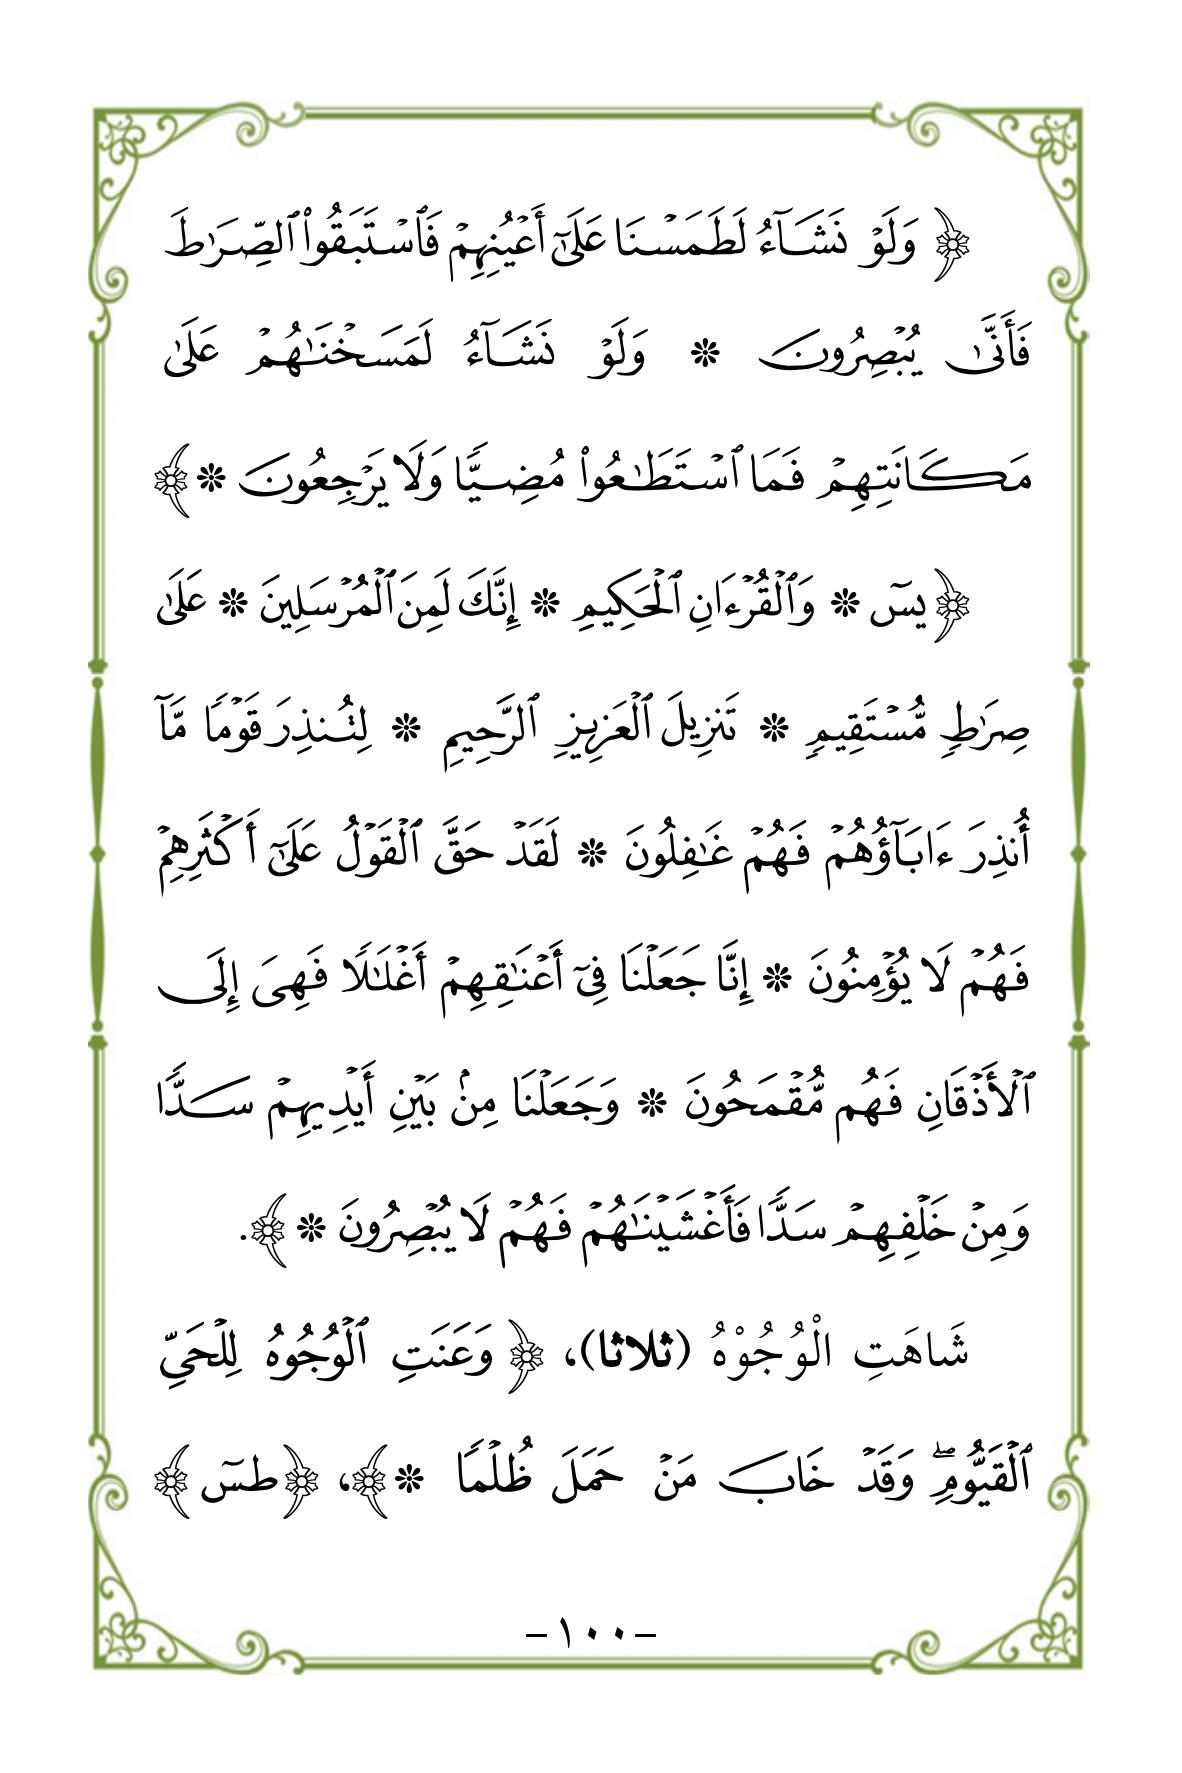 ﴿وَلَوۡ نَشَآءُ لَطَمَسۡنَا عَلَىٰٓ أَعۡيُنِهِمۡ فَٱسۡتَبَقُواْ ٱلصِّرَٰطَ
فَأَنَّىٰ يُبۡصِرُونَ * وَلَوۡ نَشَآءُ لَمَسَخۡنَٰهُمۡ عَلَىٰ
مَكَانَتِهِمۡ فَمَا ٱسۡتَطَٰعُواْ مُضِيًّا وَلَا يَرۡجِعُونَ *﴾
﴿يسٓ * وَٱلۡقُرۡءَانِ ٱلۡحَكِيمِ * إِنَّكَ لَمِنَ ٱلۡمُرۡسَلِينَ * عَلَىٰ
صِرَٰطٖ مُّسۡتَقِيمٖ * تَنزِيلَ ٱلۡعَزِيزِ ٱلرَّحِيمِ * لِتُنذِرَ قَوۡمٗا مَّآ
أُنذِرَ ءَابَآؤُهُمۡ فَهُمۡ غَٰفِلُونَ * لَقَدۡ حَقَّ ٱلۡقَوۡلُ عَلَىٰٓ أَكۡثَرِهِمۡ
فَهُمۡ لَا يُؤۡمِنُونَ * إِنَّا جَعَلۡنَا فِيٓ أَعۡنَٰقِهِمۡ أَغۡلَٰلٗا فَهِيَ إِلَى
ٱلۡأَذۡقَانِ فَهُم مُّقۡمَحُونَ * وَجَعَلۡنَا مِنۢ بَيۡنِ أَيۡدِيهِمۡ سَدّٗا
وَمِنۡ خَلۡفِهِمۡ سَدّٗا فَأَغۡشَيۡنَٰهُمۡ فَهُمۡ لَا يُبۡصِرُونَ *﴾.
شَاهَتِ الْوُجُوْهُ (ثلاثا)، ﴿وَعَنَتِ ٱلۡوُجُوهُ لِلۡحَيِّ
ٱلۡقَيُّومِۖ وَقَدۡ خَابَ مَنۡ حَمَلَ ظُلۡمٗا *﴾، ﴿طسٓ﴾
-١٠٠-